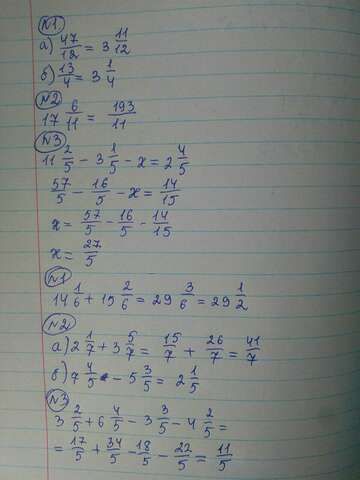 №1
а) 47/12 = 3 11/12
б) 13/4 = 3 1/4
№2
17 6/11 = 193/11
№3
11 2/5 - 3 1/5 - x = 2 4/5
57/5 - 16/5 - x = 14/15
x = 57/5 - 16/5 - 14/15
x = 27/5
№1
14 1/6 + 15 2/6 = 29 3/6 = 29 1/2
№2
а) 2 1/7 + 3 5/7 = 15/7 + 26/7 = 41/7
б) 7 4/5 - 5 3/5 = 2 1/5
№3
3 2/5 + 6 4/5 - 3 3/5 - 4 2/5 =
= 17/5 + 34/5 - 18/5 - 22/5 = 11/5